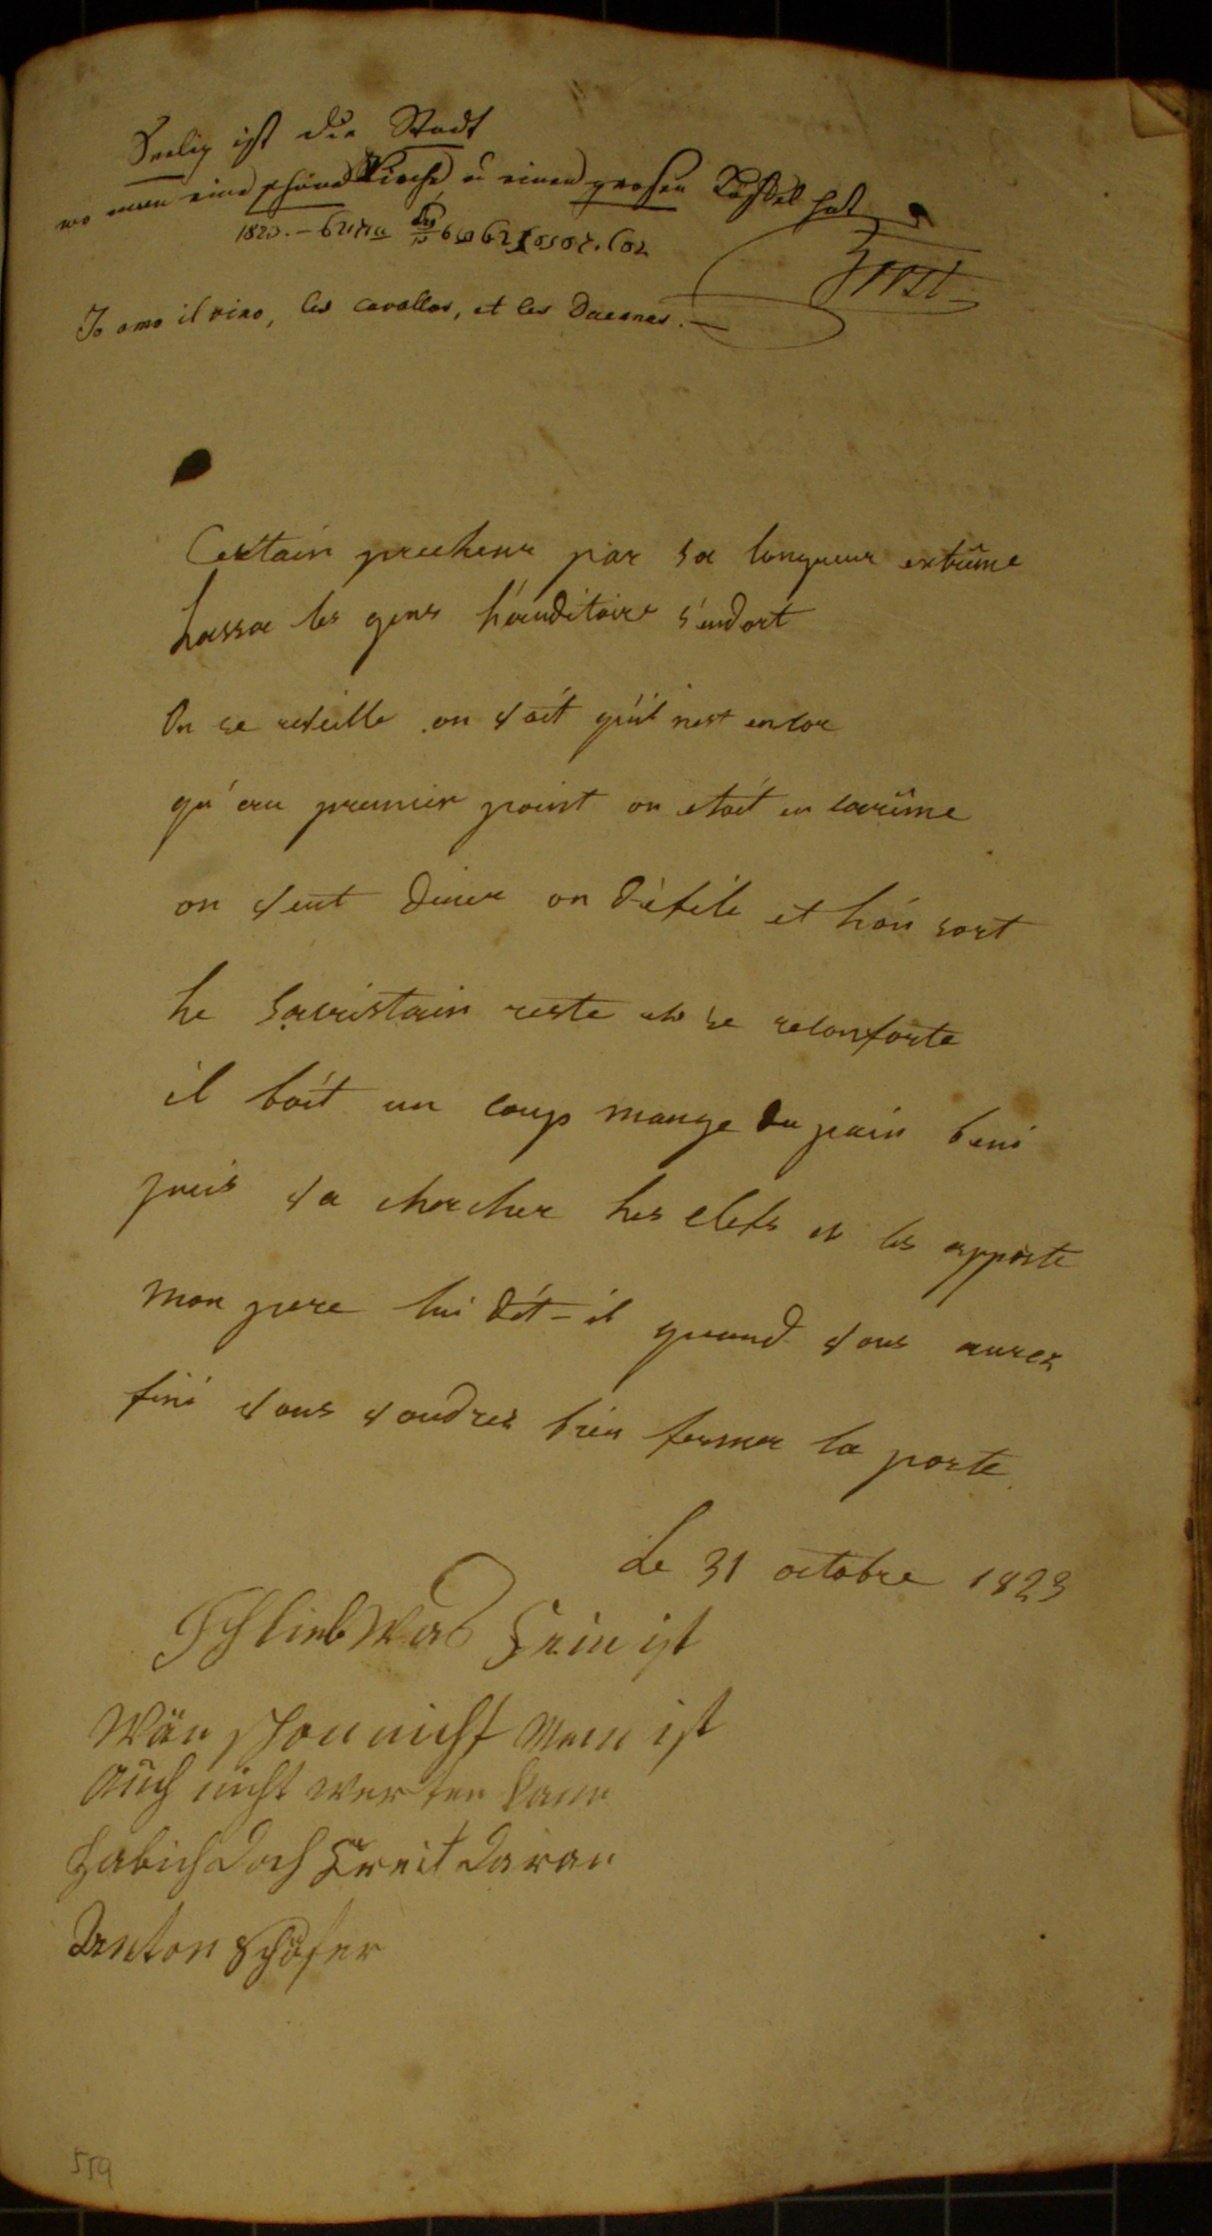 Seelig ist die Stadt
wo man eine schöne Kirche u einen grosen Löffel hat
1823. –
Io amo il vino, les cavallos, et les Duennas. —
Certain precheur par sa longueur extrême
Lassa les gens L'auditoire s'endort
On se reveille on voit qu'il n'est encor
qu'au premier point on etoit en carême
on veut diner on défile et L'on sort
Le Sacristain reste et se reconforte
il boit un coup mange du pain beni
puis va chercher Les clefs et les apporte
Mon pere lui dit-il quand vous aurez
fini vous voudrez bien fermer la porte
Le 31 octobre 1823
Ich lieb Was Fein ist
Wän schon nicht Mein ist
Auch nicht werten kann
Habich doch Freit daran
Anton Schäfer
559